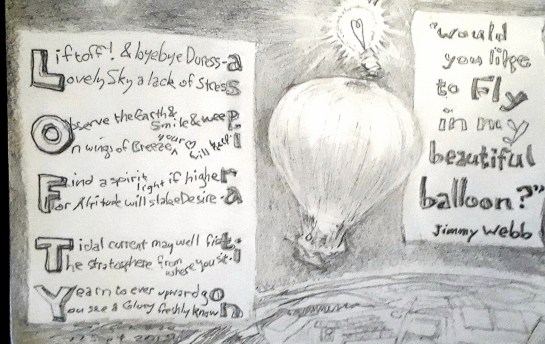 Liftoff! & byebye Duress-a
Lovely Sky a lack of Stress
Observe the Earth & Smile & weep
On wings of Breeze your will
Find a spirit light if higher
For Altitude will slake Desire-a
Tidal current may well
The stratosphere from where you sit
Yearn to ever upward go
You see a Glory freshly known
"Would
you like
to Fly
in my
beautiful
balloon?"
Jimmy Webb